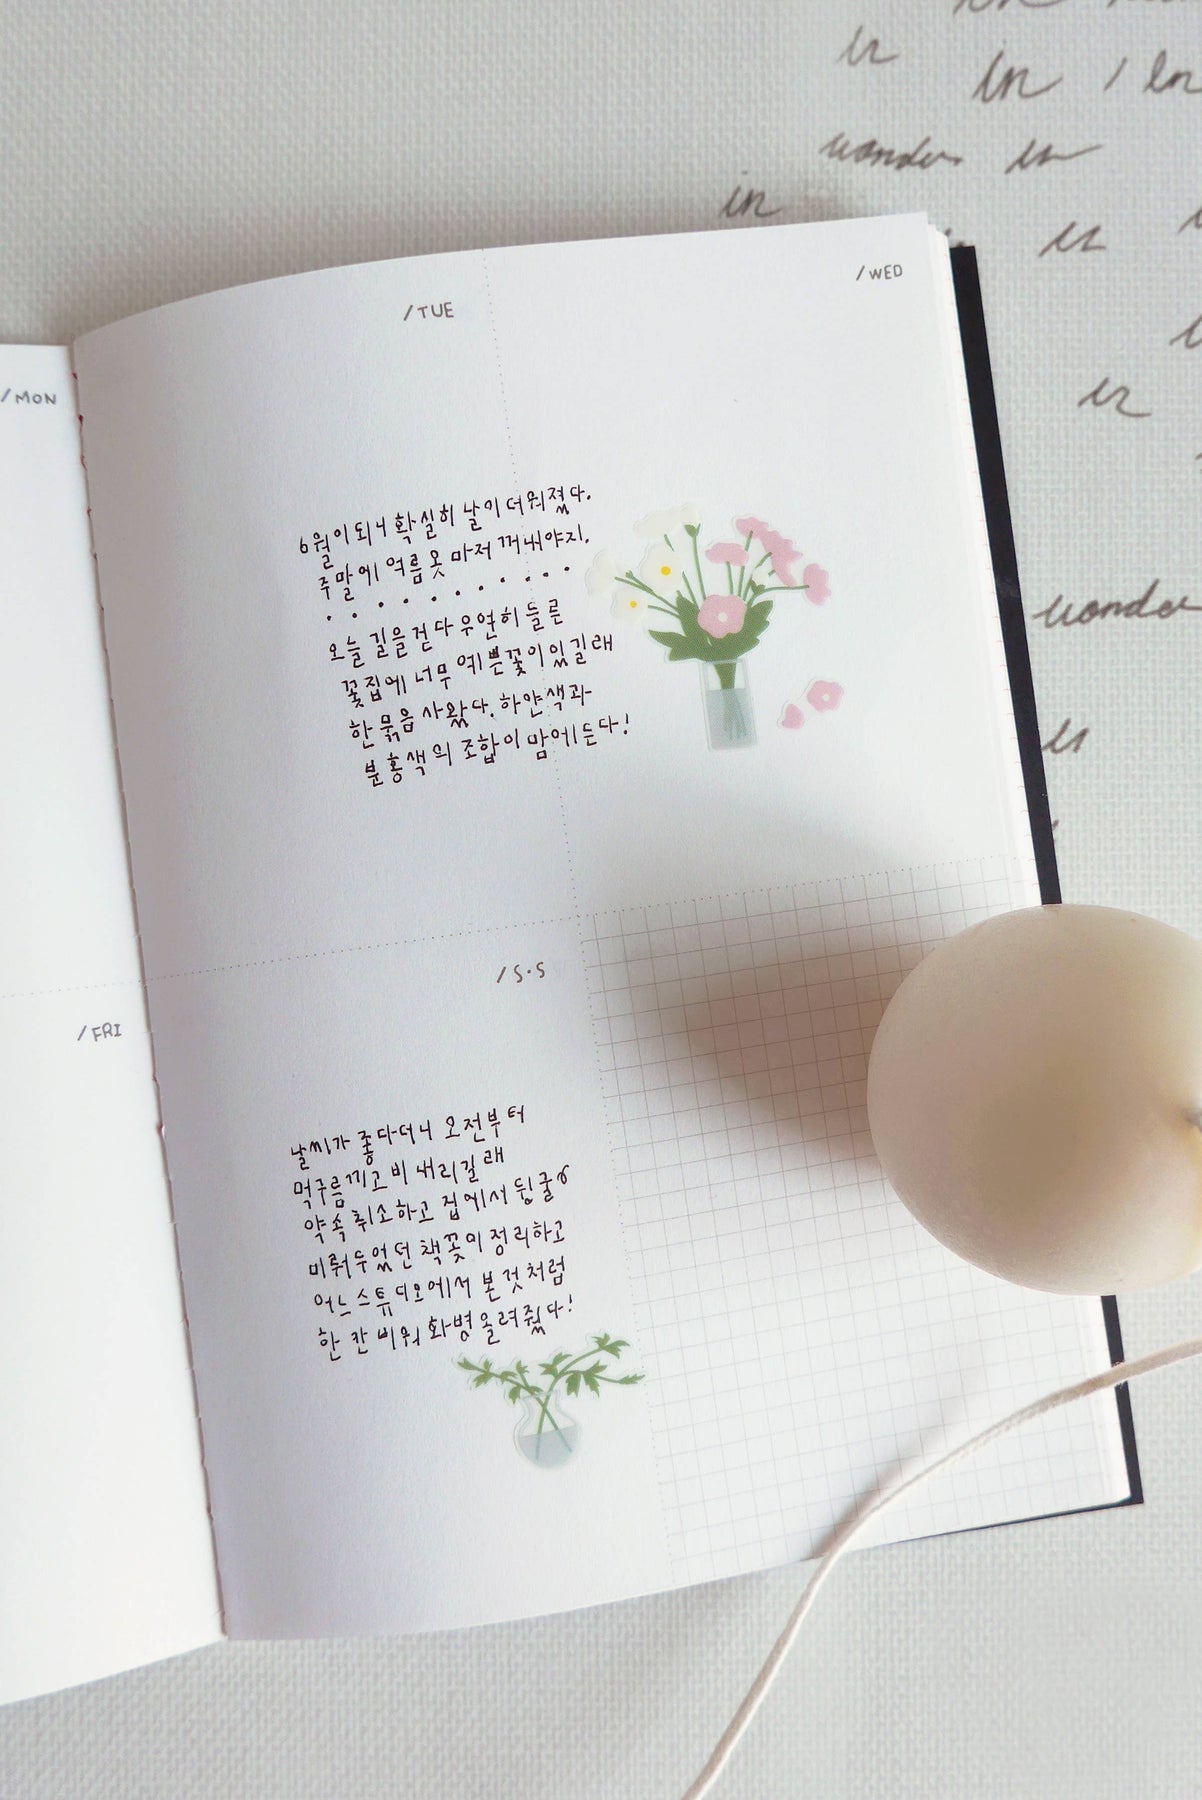 /MON
/TUE
/WED
6월이 되니 확실히 날이 더워졌다.
주말에 여름옷 마저 꺼내야지.
오늘 길을 걷다 우연히 들른
꽃집에 너무 예쁜 꽃이 있길래
한 묶음 사왔다. 하얀색과
분홍색의 조합이 맘에 든다!
/FRI
/S·S
날씨가 좋다더니 오전부터
먹구름 끼고 비 내리길래
약속 취소하고 집에서 뒹굴
미뤄두었던 책꽂이 정리하고
어느 스튜디오에서 본 것처럼
한 칸 비워 화병 올려줬다!
in
in / in
wander in
in
in
in
wander
in